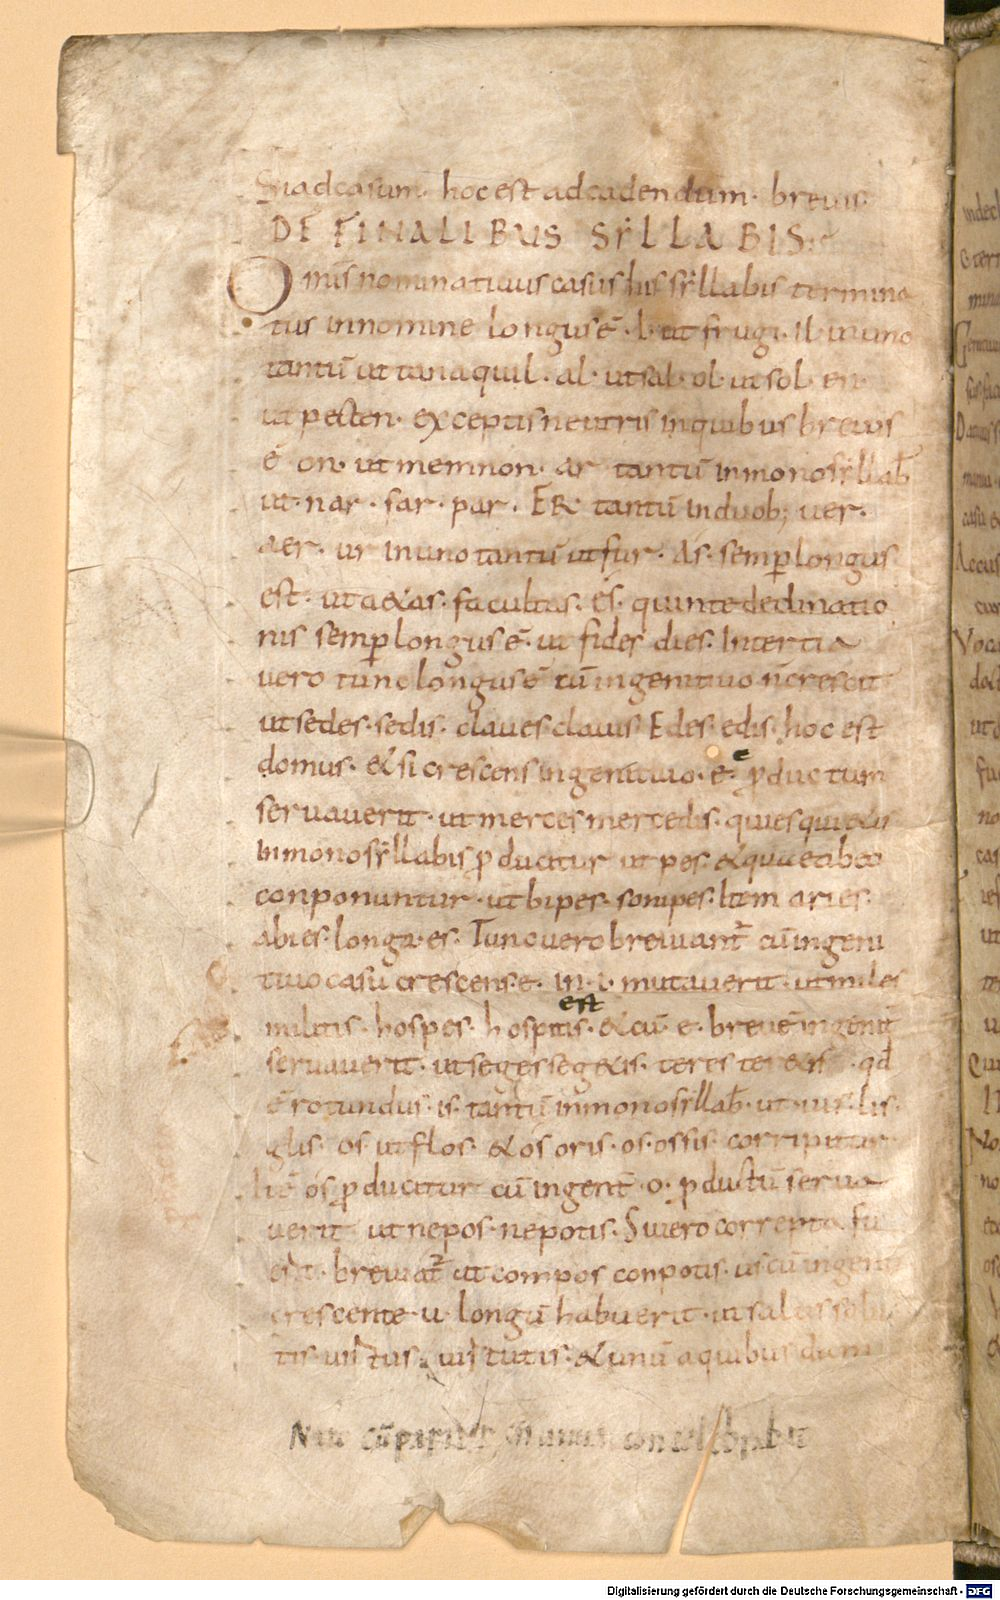 Siia adcasum· hoc est adcadendum· brevis
DE FINALIBUS SYLLABIS:
Omis nominatiuus casus his syllabis termina
tus innomine longus ē· I· ut frugi· Il in uno
tantū ut tanaquil· al· ut sal· ol· ut sol· en
ut pecten· exceptis neutris inquibus brevis
ē· on· ut memnon· ar tantū inmonosyllab̄
ut· nar· far· par· ER tantū induob; uer·
aer· ur inuno tantū ut fur· As· semp longus
est· ut aetas· facultas· Es· quinte declinatio
nis semp longus ē· ut fides dies· Intertia
uero tunc longus ē cū ingenitiuo n̄ crescit
ut sedes· sedis· claues clauis Edes· edis· hoc est
domus· & si crescens ingenitiuo· e· pductum
seruauerit· ut merces mercedis· quies qui&is
Inmonosyllabis pducitur ut pes· & quae abeo
conponuntur· ut bipes· sonipes· Item aries·
abies· longa· es· Tunc uero breuiant̄ cū ingeni
tiuo casu crescens· e· in· i· mutauerit· ut miles
est
militis· hospes· hospitis· & cū· e· breuē ingenit̄
seruauerit· ut seges seg&is· teres ter&is· qd
ē rotundus· is· tantū inmonosyllab̄· ut· uis· lis·
glis· os ut flos· & os oris· os· ossis· corripitur
os pducitur cū ingenit̄· o· pductū serua
uerit ut nepos· nepotis· Si uero correpta fu
erit· breuiat̄ ut compos conpotis· us cū ingenit̄
crescente· u· longū habuerit· ut salus salu
tis· uirtus· uirtutis· & unū a quibusdam
Digitalisierung gefördert durch die Deutsche Forschungsgemeinschaft - DFG